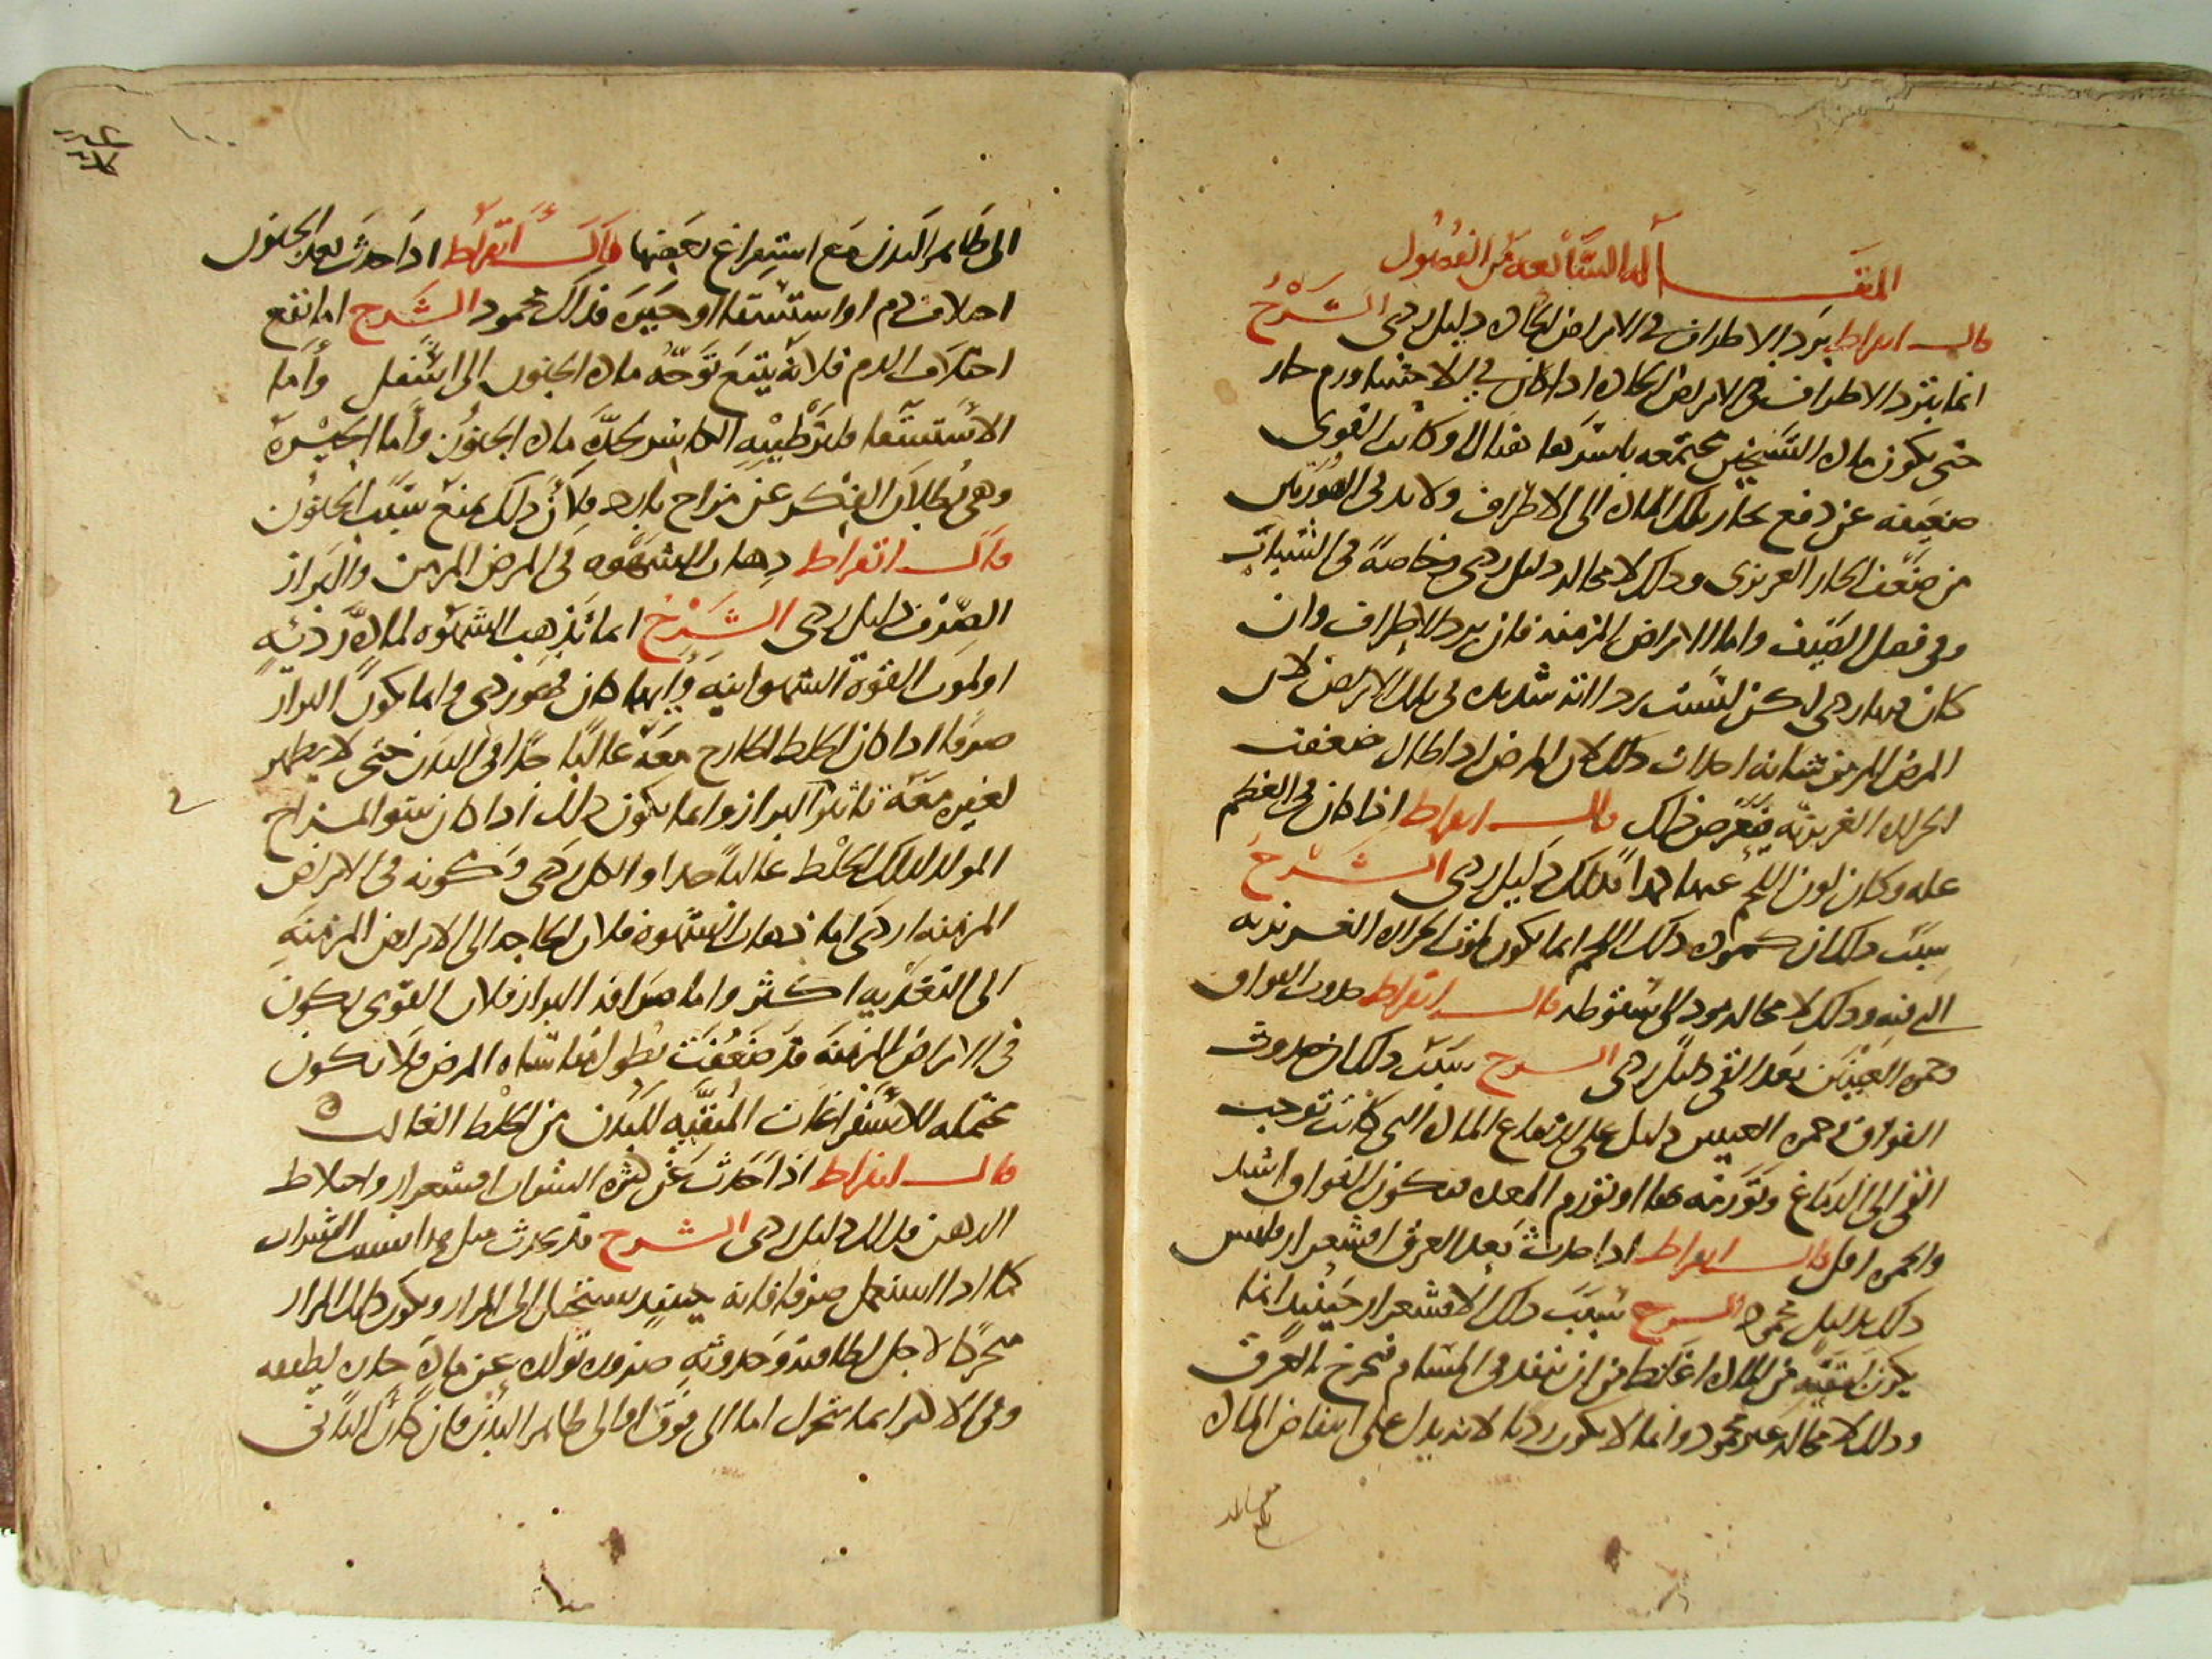 المقالة السابعة من الفصول
قال ابقراط برد الاطراف في الامراض الحادة دليل ردي الشرح
انما يبرد الاطراف في الامراض الحادة اذا كان في الاحشا ورم حار
حتى يكون مادة التسخين مجتمعة باسرها هناك او كانت القوى
ضعيفة عن دفع بخار تلك المادة الى الاطراف ولا بد في الصورتين
من ضعف الحار الغريزي وذلك لا محالة دليل ردي وخاصة في الشباب
وفي فصل الصيف واما الامراض المزمنة فان برد الاطراف وان
كان فيها ردي لكن ليست رداءته شديدة في تلك الامراض لان
المرض المزمن شانه احداث ذلك لان المرض اذا طال ضعفت
الحرارة الغريزية فيعرض ذلك قال ابقراط اذا كان في العظم
علة وكان لون اللحم عنها كمدا فذلك دليل ردي الشرح
سبب ذلك ان كمودة ذلك اللحم انما يكون لموت الحرارة الغريزية
التي فيه وذلك لا محالة مود الى سقوطه قال ابقراط حدوث الفواق
وحمرة العينين بعد القي دليل ردي الشرح سبب ذلك ان حدوث
الفواق وحمرة العينين دليل على اندفاع المادة التي كانت توجب
القي الى الدماغ وتورمه بها او تورم المعدة فيكون الفواق اشد
والحمرة اقل قال ابقراط اذا حدث بعد العرق اقشعرار فليس
ذلك بدليل محمود الشرح سبب ذلك الاقشعرار حينئذ انما
يكون لبقية من المادة اغلظ من ان تنفذ في المسام فتخرج بالعرق
وذلك لا محالة غير محمود وانما لا يكون رديا لانه يدل على انتفاض المادة
الى ظاهر البدن مع استفراغ بعضها قال ابقراط اذا حدث بعد الجنون
اختلاف دم او استسقا او حيرة فذلك محمود الشرح اما نفع
اختلاف الدم فلانه يتبع توجه مادة الجنون الى اسفل واما
الاستسقا فلترطيبه الكاسر لحدة مادة الجنون واما الحيرة
وهي بطلان الفكر عن مزاج بارد فلان ذلك يمنع سبب الجنون
قال ابقراط ذهاب الشهوة في المرض المزمن والبراز
الصرف دليل ردي الشرح انما تذهب الشهوة لمادة ردئية
او لموت القوة الشهوانية وايهما كان فهو ردي وانما يكون البراز
صرفا اذا كان الخلط الخارج معه غالبا جدا في البدن حتى لا يظهر
لغيره معه تاثير في البراز وانما يكون ذلك اذا كان سو المزاج
المولد لذلك الخلط غالبا جدا والكل ردي وكونه في الامراض
المزمنة اردى اما ذهاب الشهوة فلان الحاجة الى الامراض المزمنة
الى التغذية اكثر واما صرافة البراز فلان القوى يكون
في الامراض المزمنة قد ضعفت بطول مقاساة المرض فلا تكون
محتملة للاستفراغات المنقية للبدن من الخلط الغالب
قال ابقراط اذا حدث عن كثرة الشراب اقشعرار واختلاط
الذهن فذلك دليل ردي الشرح قد يحدث مثل هذا بسبب الشراب
كما اذا استعمل صرفا فانه حينئذ يستحيل الى المرار ويكون ذلك المرار
متحركا لاجل لطافته وحدوثه ضرورة تولده عن مادة حارة لطيفة
وفي الاكثر انما يتحرك اما الى فوق او الى ظاهر البدن فان كان الثاني